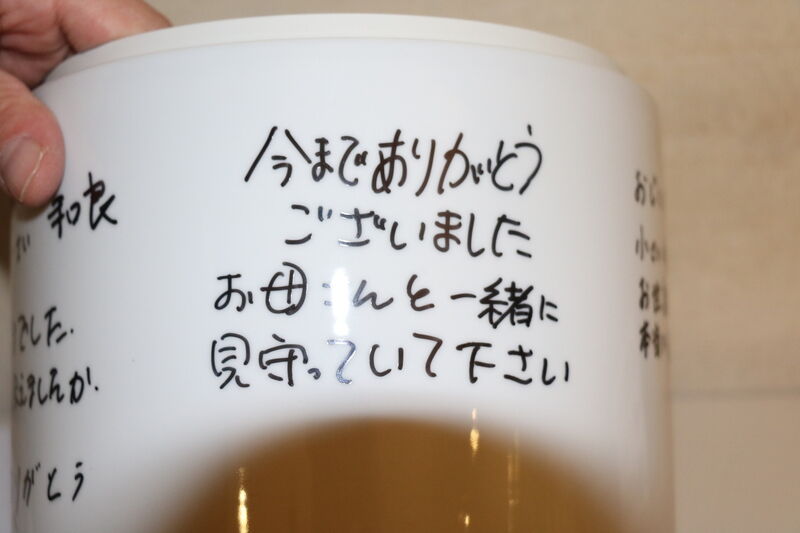 和良
でした.
ましたか.
がとう
今までありがとう
ございました
お母さんと一緒に
見守っていて下さい